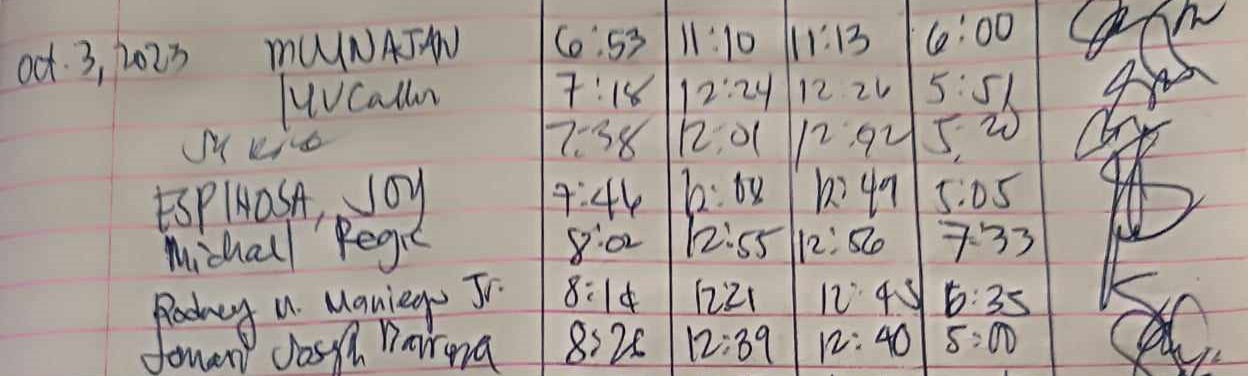 Oct. 3, 2023 MUUNAJAN 6:53 11:10 11:13 6:00
7:18 12:24 12:26 5:51
7:38 12:01 12:92 5:20
ESPINOSA, JOY 7:46 12:08 12:49 5:05
Michael Regie 8:02 12:55 12:56 7:33
Rodney U. Maniego Jr. 8:14 1221 12:45 6:35
Joseph 8:26 12:39 12:40 5:00